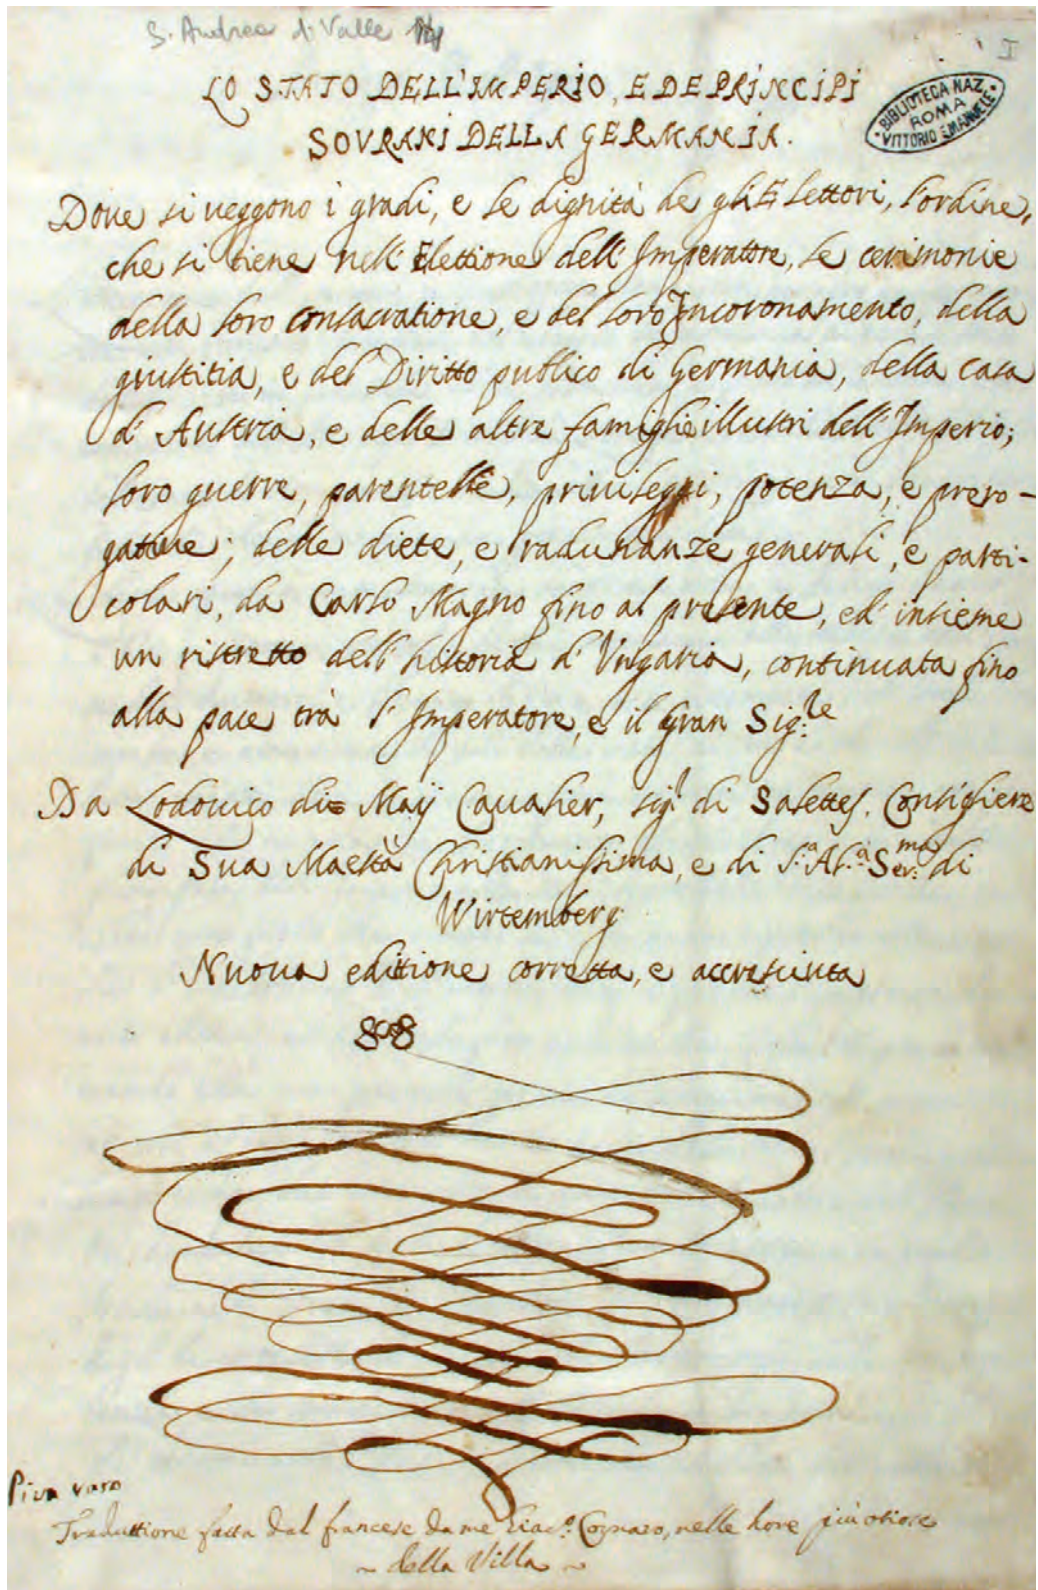 S. Andrea di Valle
I
LO STATO DELL'IMPERIO, E DE PRINCIPI
SOVRANI DELLA GERMANIA.
BIBLIOTECA NAZ.
ROMA
VITTORIO EMANUELE
Doue si ueggono i gradi, e le dignità de gli Elettori, l'ordine,
che si tiene nell' Elettione dell' Imperatore, le cerimonie
della loro consacratione, e del loro Incoronamento, della
giustitia, e del Diritto publico di Germania, della casa
d' Austria, e delle altre famiglie illustri dell' Imperio;
loro guerre, parentelle, priuileggi, potenza, e prero-
gatiue; delle diete, e radunanze generali, e parti-
colari, da Carlo Magno fino al presente, ed' insieme
un ristretto dell' historia d' Vngaria, continuata fino
alla pace trà l' Imperatore, e il Gran Sig.le
Da Lodouico di Maij Caualier, sig.r di Salettes. Consigliere
di Sua Maestà Christianissima, e di S.a Al.a Ser.ma di
Wirtemberg
Nuoua editione corretta, e accresciuta
Traduttione fatta dal francese da me Giac.o Cornaro, nelle hore più otiose
~ della Villa ~